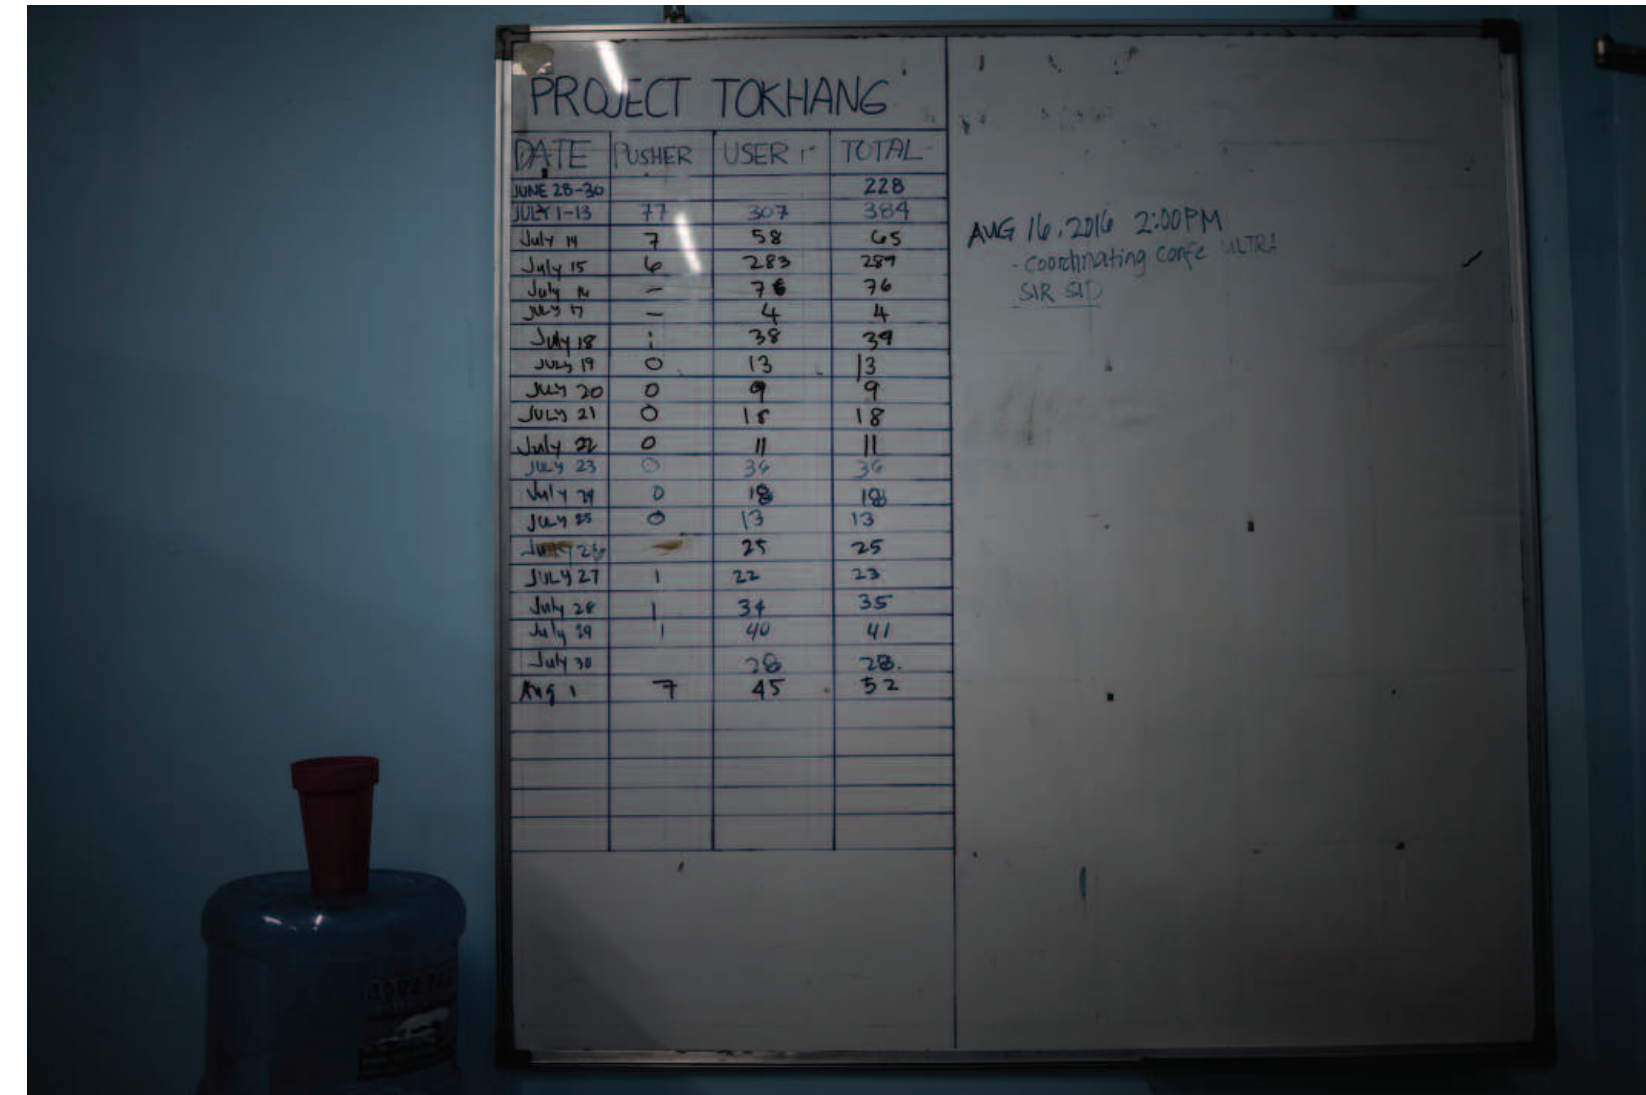 PROJECT TOKHANG
DATE PUSHER USER TOTAL
JUNE 28-30 228
JULY 1-13 77 307 384
July 14 7 58 65
July 15 6 283 289
July 16 — 76 76
JULY 17 — 4 4
July 18 1 38 39
JULY 19 0 13 13
JULY 20 0 9 9
JULY 21 0 18 18
July 22 0 11 11
JULY 23 0 36 36
July 24 0 18 18
JULY 25 0 13 13
July 26 25 25
JULY 27 1 22 23
July 28 1 34 35
July 29 1 40 41
July 30 28 28.
Aug 1 7 45 52
AUG 16, 2016 2:00PM
- coordinating confe ULTRA
SIR SID